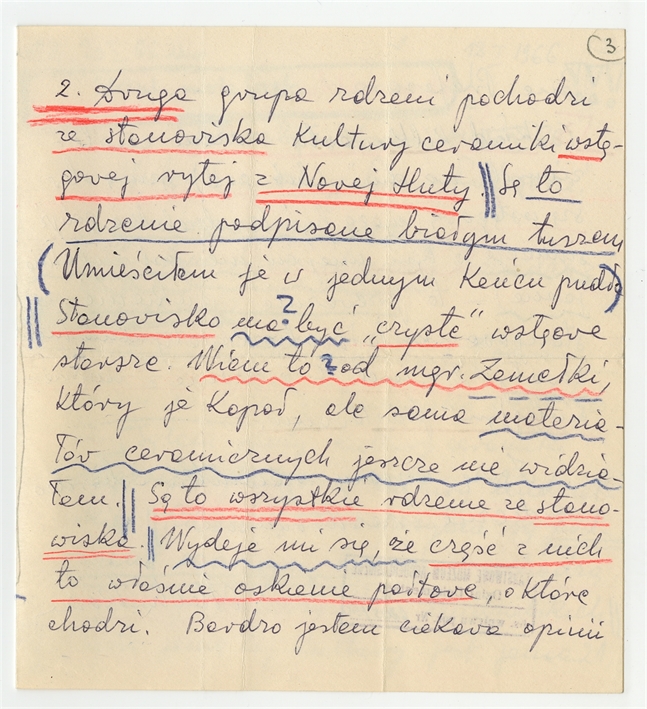 3
2. Druga grupa rdzeni pochodzi
ze stanowiska Kultury ceramiki wstę-
gowej rytej z Nowej Huty. Są to
rdzenie podpisane białym tuszem
(Umieściłem je w jednym końcu pudła)
Stanowisko ma być "czyste" wstęgowe
starsze. Wiem to od mgr. Zemełki,
który je kopał, ale sama materia-
łów ceramicznych jeszcze nie widzia-
łam. Są to wszystkie rdzenie ze stano-
wiska. Wydaje mi się, że część z nich
to właśnie oskame pałtowe, o które
chodzi. Bardzo jestem ciekawa opinii